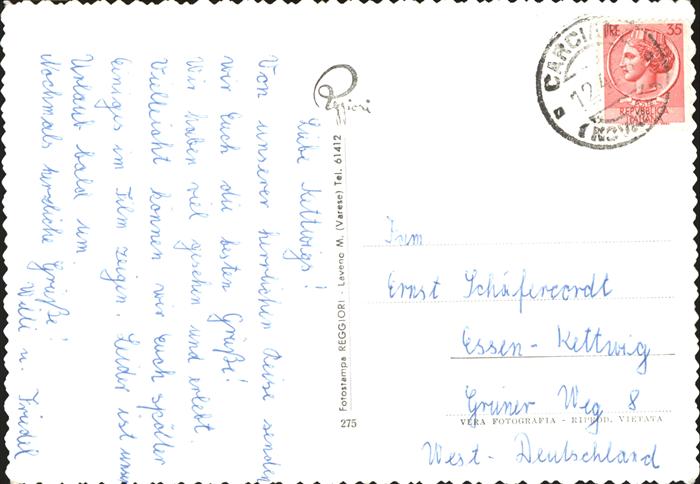 Liebe Kettwigs!
Von unserer herrlichen Reise senden
wir Euch die besten Grüße!
Wir haben viel gesehen und erlebt.
Vielleicht können wir Euch später
einiges im Film zeigen. Leider ist unser
Urlaub bald um.
Nochmals herzliche Grüße!
Willi u. Friedel
Reggiori
Fotostampa REGGIORI - Laveno M. (Varese) Tel. 61412
275
LIRE 35
REPVBBLICA
ITALIANA
Fam
Ernst Schäfercordt
Essen-Kettwig
Grüner Weg 8
VERA FOTOGRAFIA - RIPROD. VIETATA
West-Deutschland